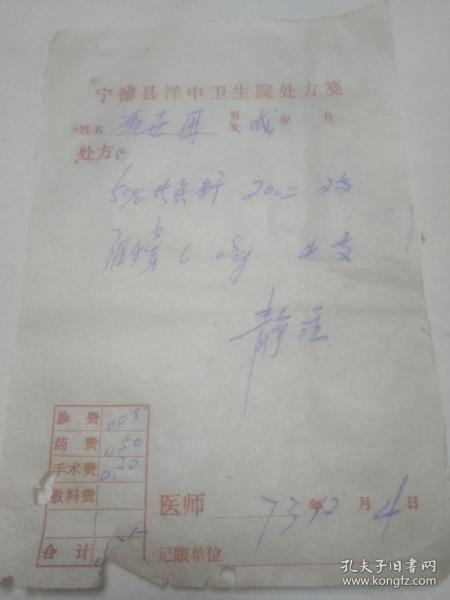 宁德县洋中卫生院处方笺
姓名 男 女 成 岁 月
处方：
50% 20cc 2支
C 0.5g 4支
静注
诊费 0.05
药费 0.50
手术费 0.20
敷料费
合计
医师 73年12月4日
记账单位
孔夫子旧书网